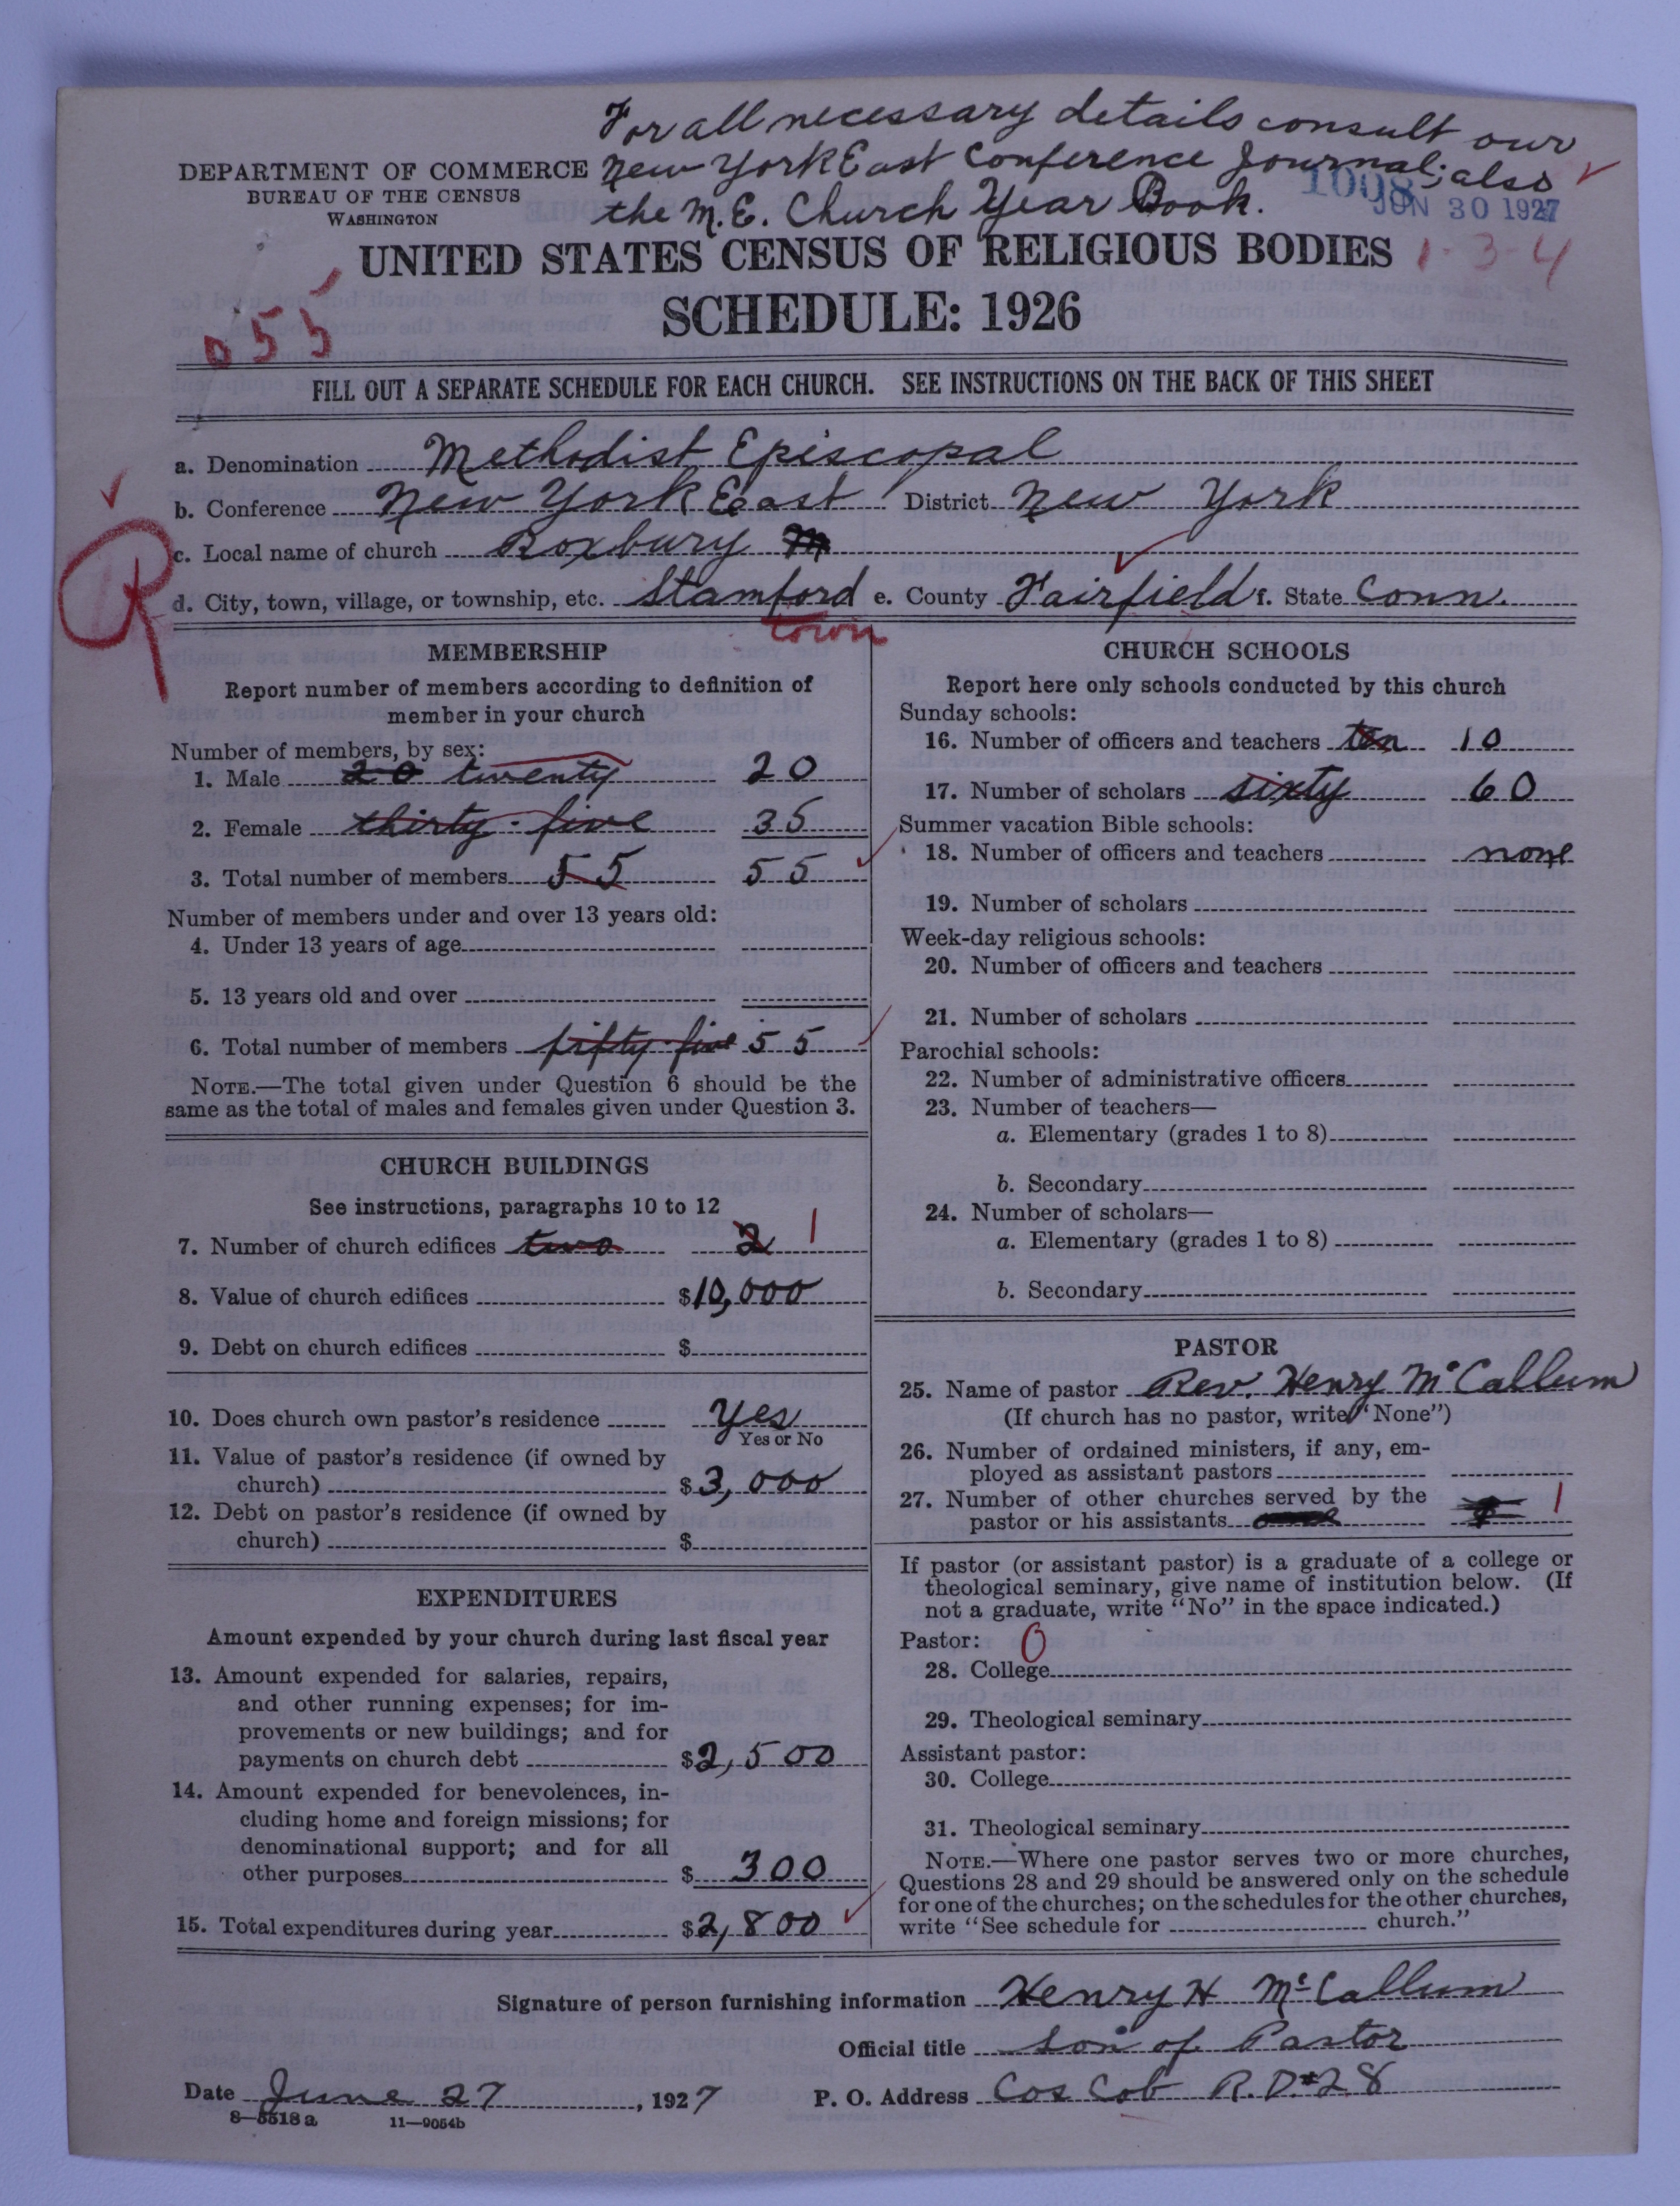 For all necessary details consult our
New York East Conference Journal; also
the M.E. Church Year Book.
DEPARTMENT OF COMMERCE
BUREAU OF THE CENSUS
WASHINGTON
1008
JUN 30 1927
UNITED STATES CENSUS OF RELIGIOUS BODIES
1-3-4
SCHEDULE: 1926
055
FILL OUT A SEPARATE SCHEDULE FOR EACH CHURCH. SEE INSTRUCTIONS ON THE BACK OF THIS SHEET
a. Denomination Methodist Episcopal
b. Conference New York East District New York
c. Local name of church Roxbury
R
d. City, town, village, or township, etc. Stamford e. County Fairfield f. State Conn.
town
MEMBERSHIP
Report number of members according to definition of
member in your church
Number of members, by sex:
1. Male 20 twenty 20
2. Female thirty-five 35
3. Total number of members 55 55
Number of members under and over 13 years old:
4. Under 13 years of age
5. 13 years old and over
6. Total number of members fifty-five 55
NOTE.—The total given under Question 6 should be the
same as the total of males and females given under Question 3.
CHURCH BUILDINGS
See instructions, paragraphs 10 to 12
7. Number of church edifices two 2 1
8. Value of church edifices $10,000
9. Debt on church edifices $
10. Does church own pastor's residence Yes
Yes or No
11. Value of pastor's residence (if owned by
church) $3,000
12. Debt on pastor's residence (if owned by
church) $
EXPENDITURES
Amount expended by your church during last fiscal year
13. Amount expended for salaries, repairs,
and other running expenses; for im-
provements or new buildings; and for
payments on church debt $2,500
14. Amount expended for benevolences, in-
cluding home and foreign missions; for
denominational support; and for all
other purposes $300
15. Total expenditures during year $2,800
CHURCH SCHOOLS
Report here only schools conducted by this church
Sunday schools:
16. Number of officers and teachers ten 10
17. Number of scholars sixty 60
Summer vacation Bible schools:
18. Number of officers and teachers none
19. Number of scholars
Week-day religious schools:
20. Number of officers and teachers
21. Number of scholars
Parochial schools:
22. Number of administrative officers
23. Number of teachers—
a. Elementary (grades 1 to 8)
b. Secondary
24. Number of scholars—
a. Elementary (grades 1 to 8)
b. Secondary
PASTOR
25. Name of pastor Rev. Henry McCallum
(If church has no pastor, write "None")
26. Number of ordained ministers, if any, em-
ployed as assistant pastors
27. Number of other churches served by the
pastor or his assistants 1
If pastor (or assistant pastor) is a graduate of a college or
theological seminary, give name of institution below. (If
not a graduate, write "No" in the space indicated.)
Pastor: 0
28. College
29. Theological seminary
Assistant pastor:
30. College
31. Theological seminary
NOTE.—Where one pastor serves two or more churches,
Questions 28 and 29 should be answered only on the schedule
for one of the churches; on the schedules for the other churches,
write "See schedule for church."
Signature of person furnishing information Henry H McCallum
Official title Son of Pastor
Date June 27, 1927 P. O. Address Cos Cob R.D.#28
8—5518 a 11—9054b